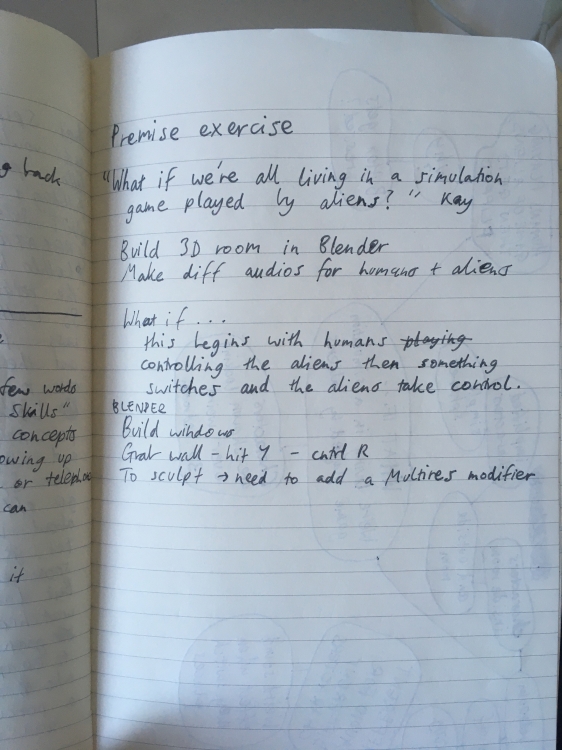 g back
few words
skills"
concepts
owing up
or telephone
can
it
Premise exercise
"What if we're all living in a simulation
game played by aliens?" Kay
Build 3D room in Blender
Make diff audios for humans + aliens
What if ...
this begins with humans playing
controlling the aliens then something
switches and the aliens take control.
BLENDER
Build windows
Grab wall - hit Y - cntrl R
To sculpt → need to add a Multires modifier